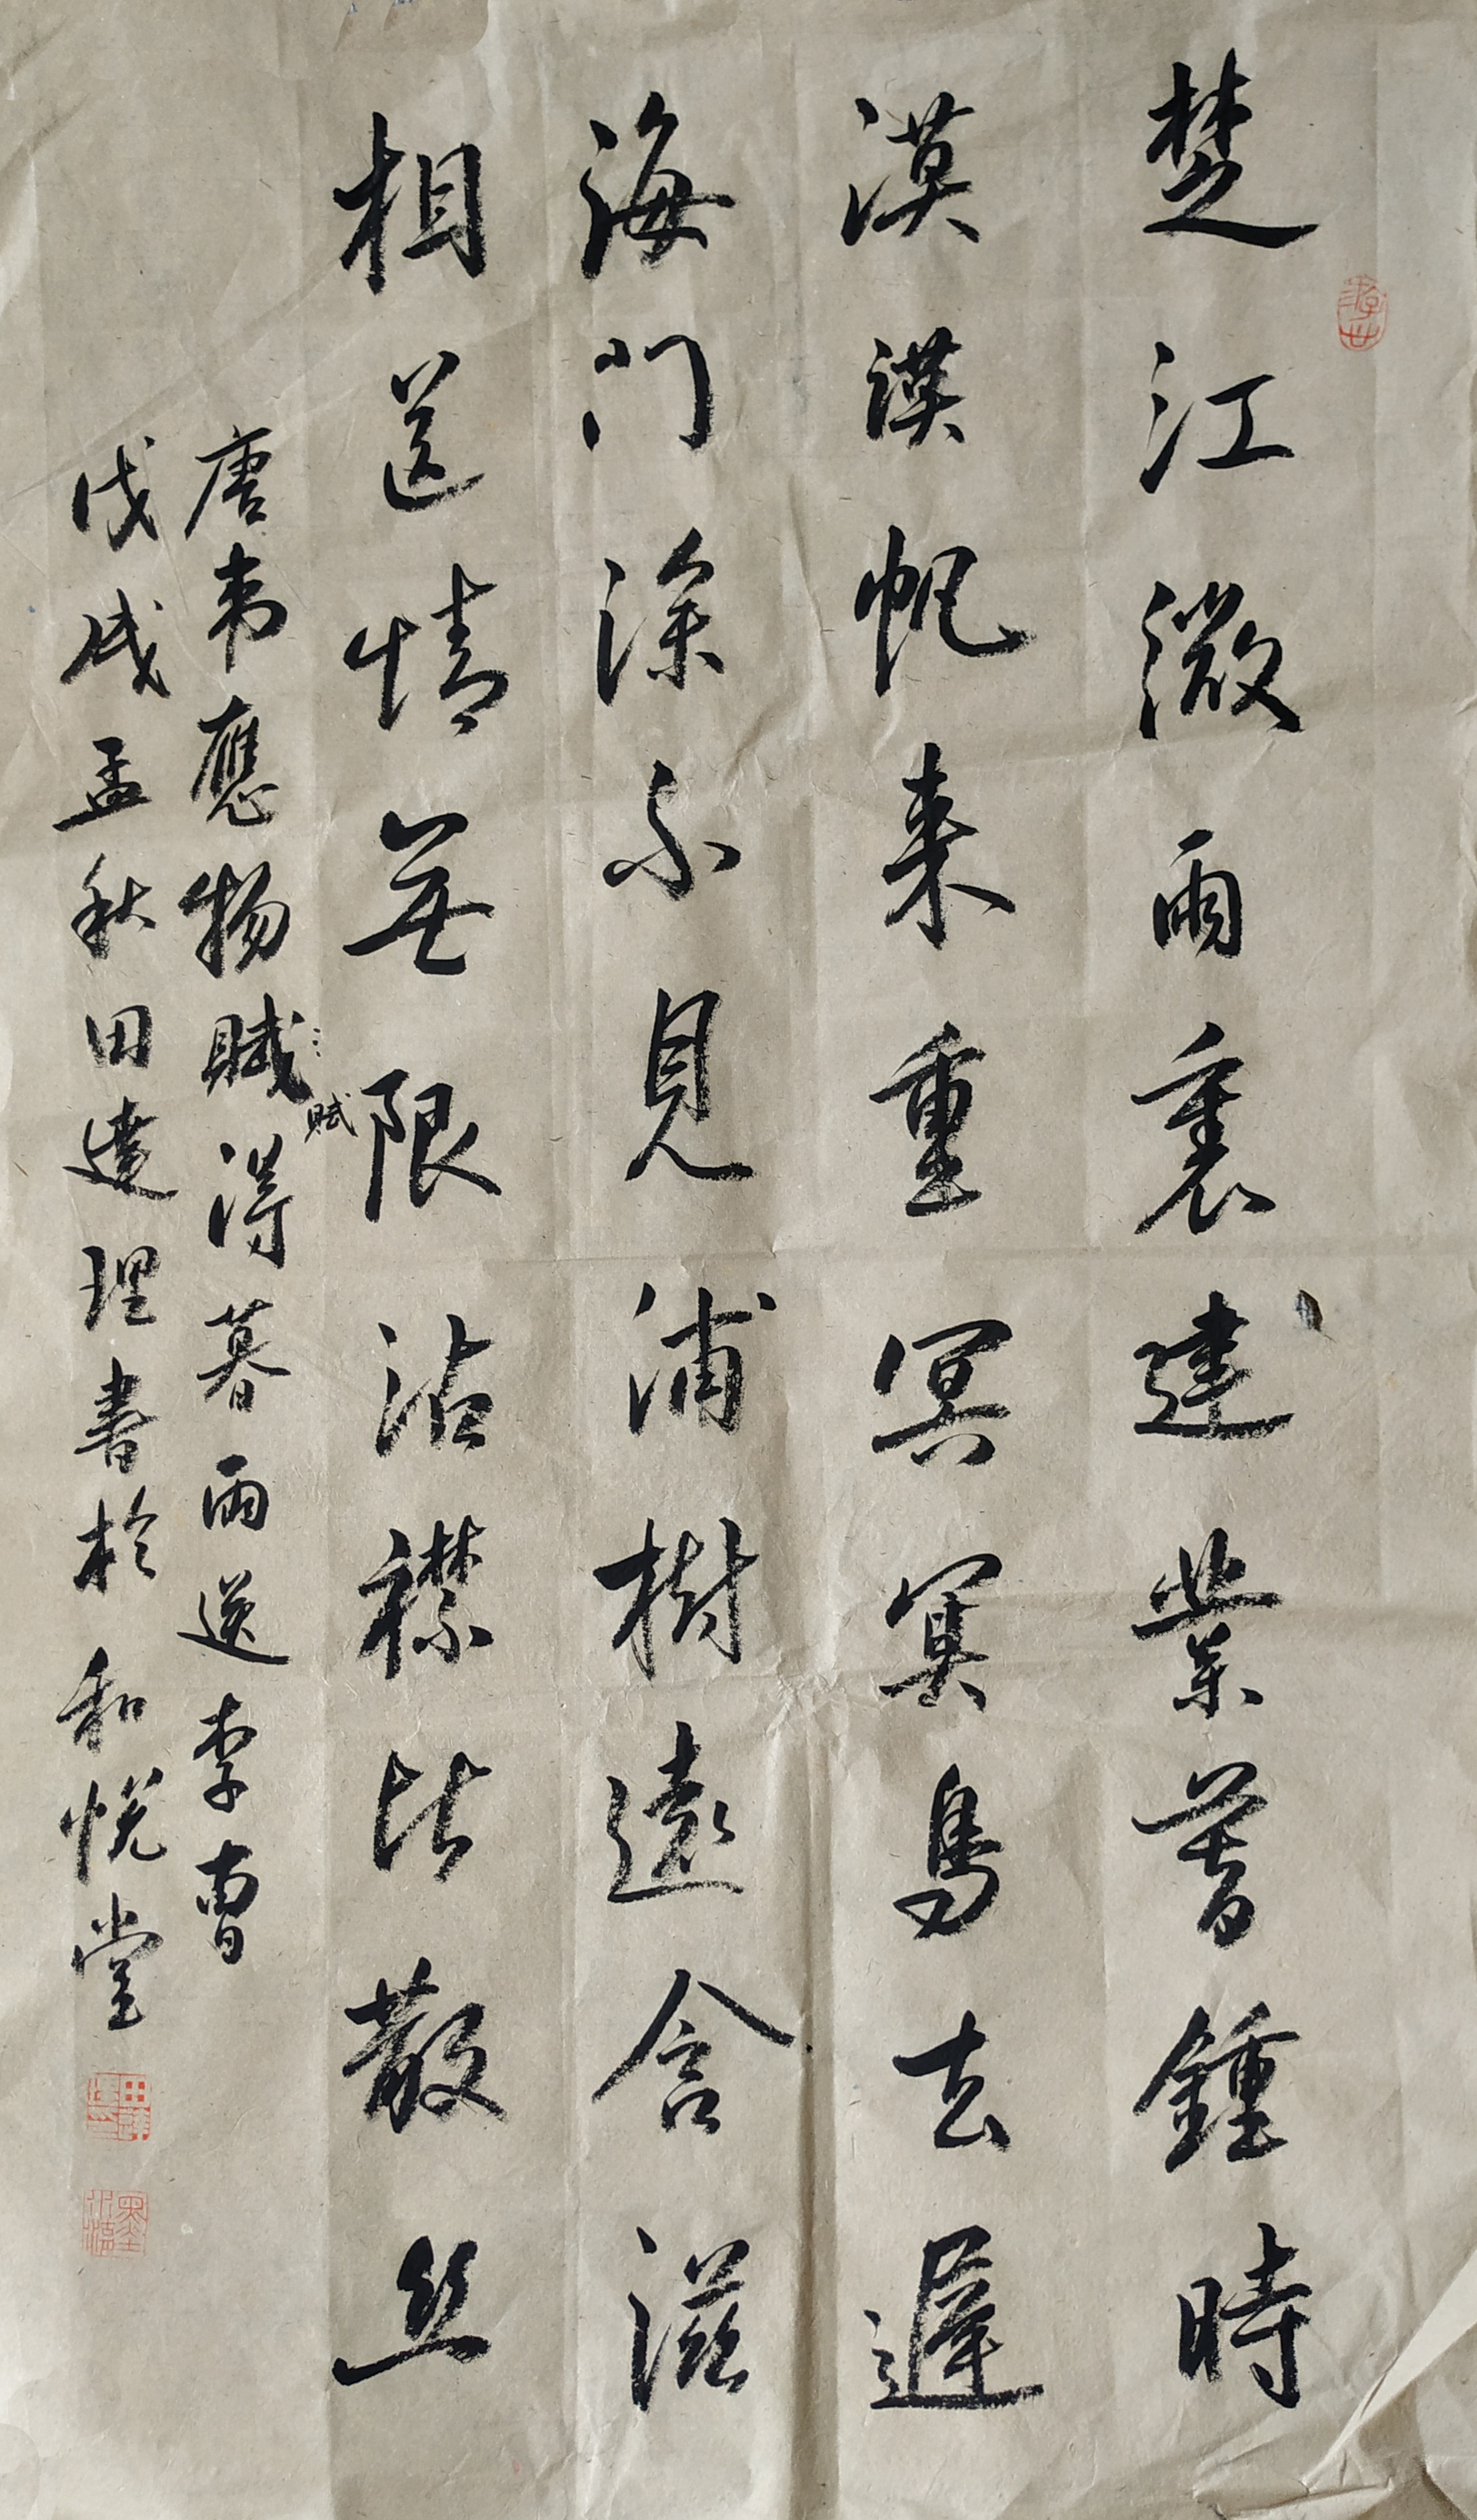 楚江微雨裏建業暮鍾時
漠漠帆来重冥冥鳥去遲
海门深不見浦樹遠含滋
相送情無限沾襟比散丝
唐韦應物賦得暮雨送李曹
賦
戊戌孟秋田達理書於和悦堂